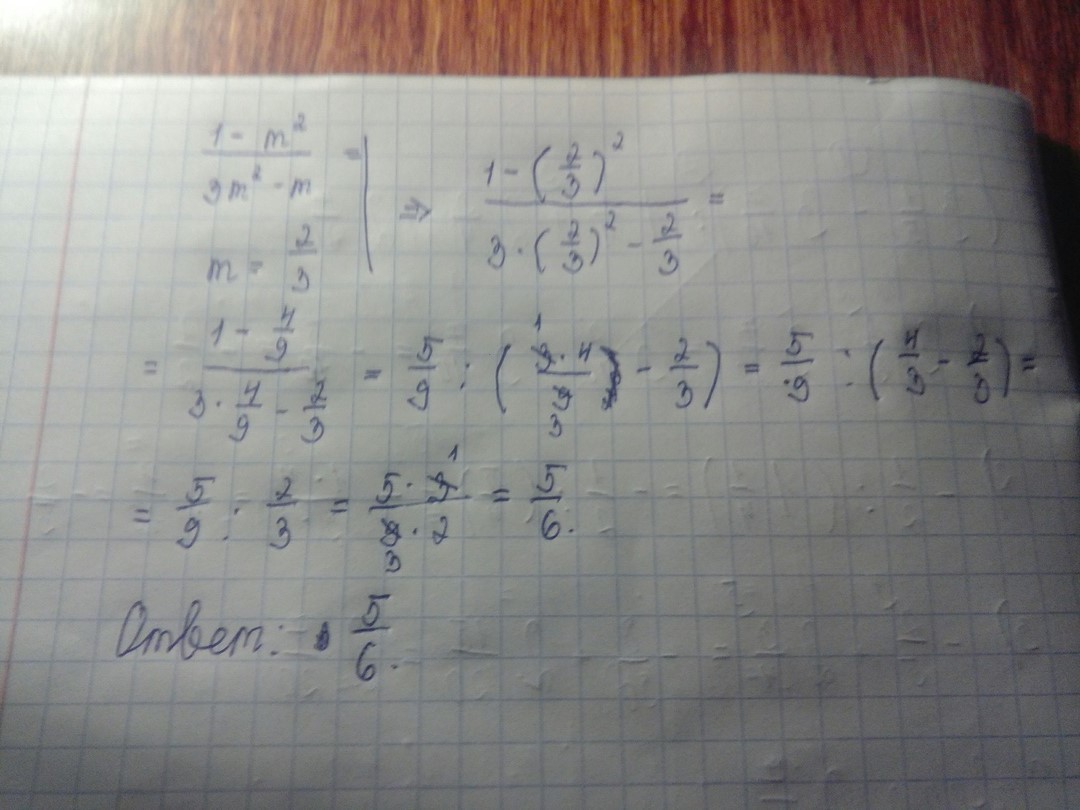 (1 - m²)/(3m² - m) = | ⇒ (1 - (2/3)²)/(3 · (2/3)² - 2/3) =
m = 2/3
= (1 - 4/9)/(3 · 4/9 - 2/3) = 5/9 : (3 · 4/9 - 2/3) = 5/9 : (4/3 - 2/3) =
= 5/9 : 2/3 = (5 · 3)/(9 · 2) = 5/6.
Ответ: 5/6.